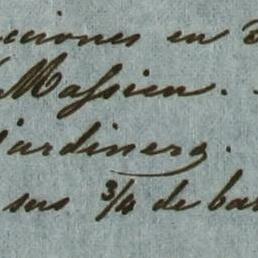 cciones en
Massieu.
jardinera.
sus 3/4 de bar